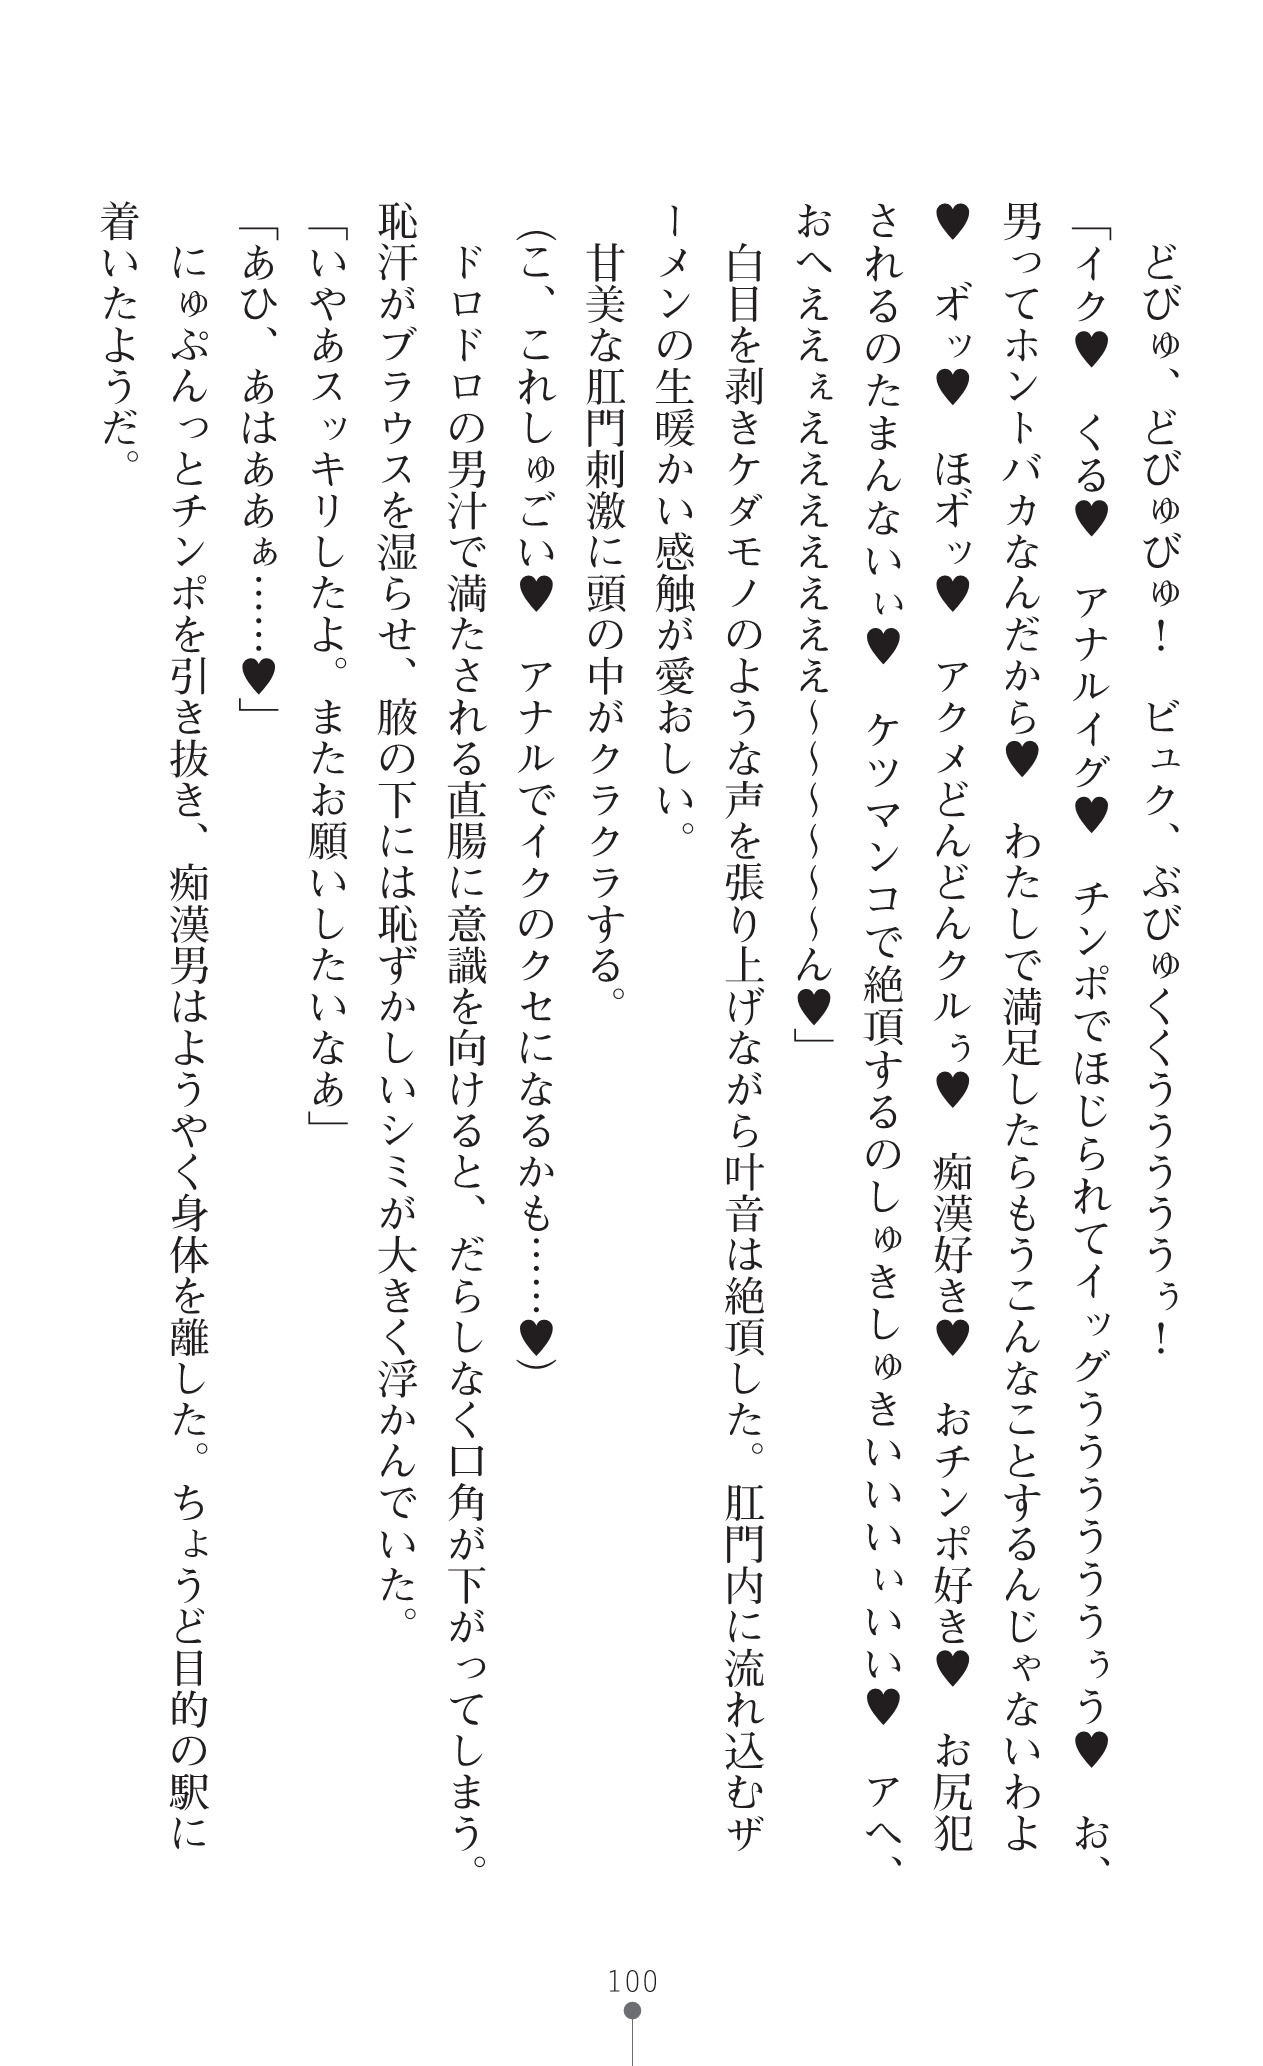 どびゅ、どびゅびゅ！　ビュク、ぶびゅくくうううううぅ！
「イク♥　くる♥　アナルイグ♥　チンポでほじられてイッグううううううぅう♥　お、
男ってホントバカなんだから♥　わたしで満足したらもうこんなことするんじゃないわよ
♥　オ゛ッ♥　ほオ゛ッ♥　アクメどんどんクルぅ♥　痴漢好き♥　おチンポ好き♥　お尻犯
されるのたまんないぃ♥　ケツマンコで絶頂するのしゅきしゅきいいいぃいい♥　アヘ、
おへええぇえええええええ～～～～～～ん♥」
　白目を剥きケダモノのような声を張り上げながら叶音は絶頂した。肛門内に流れ込むザ
ーメンの生暖かい感触が愛おしい。
　甘美な肛門刺激に頭の中がクラクラする。
（こ、これしゅごい♥　アナルでイクのクセになるかも……♥）
　ドロドロの男汁で満たされる直腸に意識を向けると、だらしなく口角が下がってしまう。
恥汗がブラウスを湿らせ、腋の下には恥ずかしいシミが大きく浮かんでいた。
「いやあスッキリしたよ。またお願いしたいなあ」
「あひ、あはああぁ……♥」
　にゅぷんっとチンポを引き抜き、痴漢男はようやく身体を離した。ちょうど目的の駅に
着いたようだ。
100